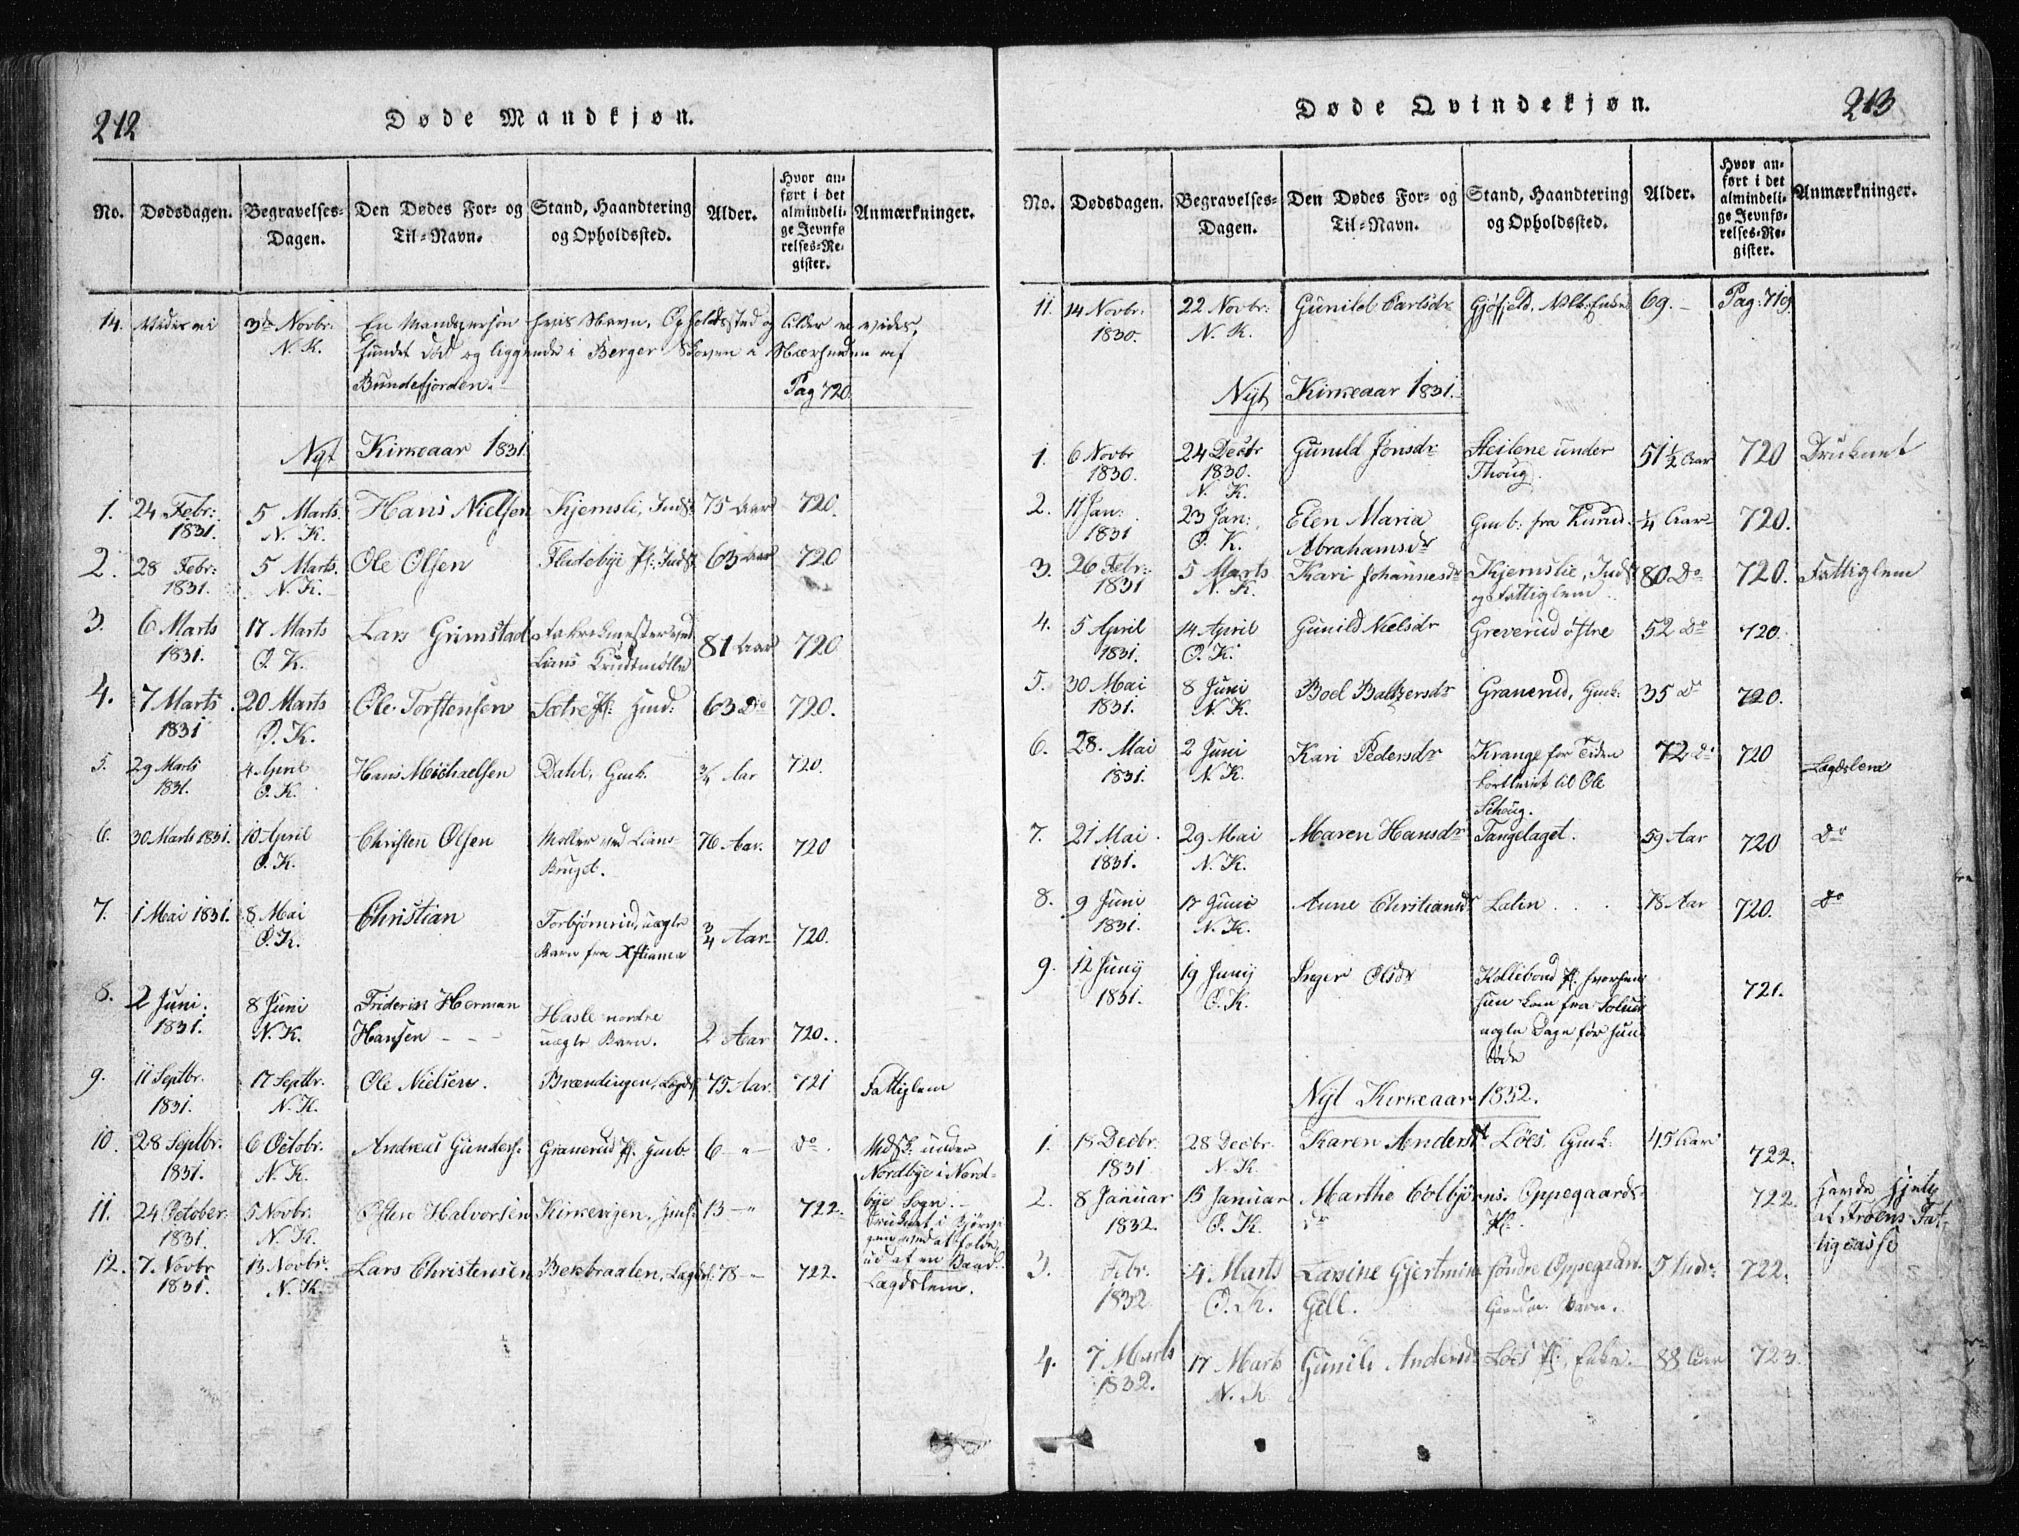 212
Døde Mandkjøn.
No. Dødsdagen. Begravelses-Dagen. Den Dødes For- og Til-Navn. Stand, Haandtering og Opholdssted. Alder. Hvor anført i det almindelige Jevnførelses-Register. Anmærkninger.
14. 3de Novbr: N. K. En Mandsperson hvis Navn, Opholdssted og Alder ei vides,
fundet død og liggende i Berger Skoven i Nærheden af
Bundefjorden. Pag 720
Nyt Kirkeaar 1831
1. 24 Febr: 1831. 5 Marts. N. K. Hans Nielsen Kjernsli, Inds: 75 Aar 720.
2. 28 Febr: 1831. 5 Marts. N. K. Ole Olsen Fladebye Pl: Inds: 63 Aar 720
3. 6 Marts 1831. 17 Marts O. K. Lars Grimstad Lians Krudtmølle 81 Aar 720
4. 7 Marts 1831 20 Marts O. K. Ole Torstensen Sætre Pl: 63 Do 720.
5. 29 Marts 1831. 4 April O. K. Hans Michaelsen Dahl, Gmb. 3/4 Aar 720.
6. 30 Marts 1831. 10 April O. K. Christen Olsen Møller ved Lians Bruget. 76 Aar. 720
7. 1 Mai 1831. 8 Mai O. K. Christian Torbjørnrud, uægte Barn fra Xstiania 3/4 Aar 720.
8. 2 Juni. 1831. 8 Juni N. K. Friderik Herman Hansen Hasle nordre uægte Barn. 2 Aar 720.
9. 11 Septbr. 1831. 17 Septbr. N. K. Ole Nielsen. Brændingen, Lægds: 75 Aar. 721 Fattiglem
10. 28 Septbr. 1831. 6 Octobr. N. K. Andreas Gunders. Granerud Pl: Gmb 6 - " - do. under Nordbye i Nordbye Sogn.
11. 24 October. 1831. 5 Novbr. N. K. Østen Halvorsen Kirkevigen, 13 - " 722. Druknet i ved at falde ud af en Baad
12. 7. Novbr 1831. 13 Novbr. N. K. Lars Christensen Bekbraaten, Lægds: 78 - 722. Lægdslem.
213
Døde Qvindekjøn.
No. Dødsdagen. Begravelses-Dagen. Den Dødes For- og Til-Navn. Stand, Haandtering og Opholdssted. Alder. Hvor anført i det almindelige Jevnførelses-Register. Anmærkninger.
11. 14 Novbr: 1830. 22 Novbr: N. K. Gunild Carlsdr Gjøfjeld, Enke 69. - Pag: 719
Nyt Kirkeaar 1831.
1. 6 Novbr 1830. 24 Decbr 1830. N. K. Gunild Jonsdr Steilene under Thoug. 51 1/2 Aar 720 Druknet
2. 11 Jan: 1831 23 Jan: O. K. Elen Maria Abrahamsdr Gmb: fra 1/4 Aar 720.
3. 26 Febr: 1831 5 Marts N. K. Kari Johannesdr Kjernslie, Inds: og Fattiglem 80 Do 720. Fattiglem
4. 5 April 1831. 14 April O. K. Gunild Nielsdr Greverud østre 52 Do 720.
5. 30 Mai 1831. 8 Juni N. K. Boel Baltzersdr Granerud, Gmk: 35 Do 720.
6. 28. Mai 1831. 2 Juni N. K. Kari Pedersdr Krange for Tiden til Ole Schoug. 72 Do 720 Lægdslem
7. 21 Mai. 1831. 29 Mai N. K. Maren Hansdr Tangelaget. 59 Aar 720 Do
8. 9 Juni 1831. 17 Juni N. K. Anne Christiansdr Laten . . 78 Aar 720. Do
9. 12 Juny 1831. 19 Juny O. K. Inger Olsdr Kollebond Pl. hvorhen hun kom fra nogle Dage før hun døde 721.
Nyt Kirkeaar 1832.
1. 18 Decbr. 1831 28 Decbr. N. K. Karen Andersdr Løes. Gmk: 45 Aar 722.
2. 8 Januar 1832. 15 Januar O. K. Marthe Colbjørnsdr Oppegaards-Pl. 722. Havde Hjelp af Froens Fattigcasse
3. Febr. 1832 4 Marts O. K. Larsine Gjertmine Gill. søndre Oppegaard. Barn. 5 722.
4. 7 Marts 1832. 17 Marts N. K Gunild Andersdr Løes Pl: Enke. 88 Aar 723.